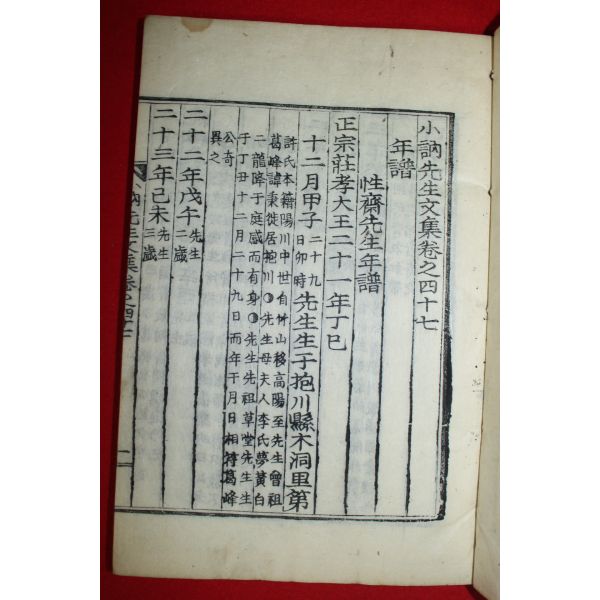 小訥先生文集卷之四十七
年譜
性齋先生年譜
正宗莊孝大王二十一年丁巳
十二月甲子二十九日卯時先生生于抱川縣木洞里第
許氏本籍陽川中世自竹山移高陽至先生曾祖
葛峰諱秉徙居抱川○先生母夫人李氏夢黃白
二龍降于庭感而有身○先生先祖草堂先生生
于丁丑十二月二十九日而年干月日相符葛峰
公奇
異之
二十二年戊午先生二歲
二十三年己未先生三歲
小訥先生文集卷之四十七
一